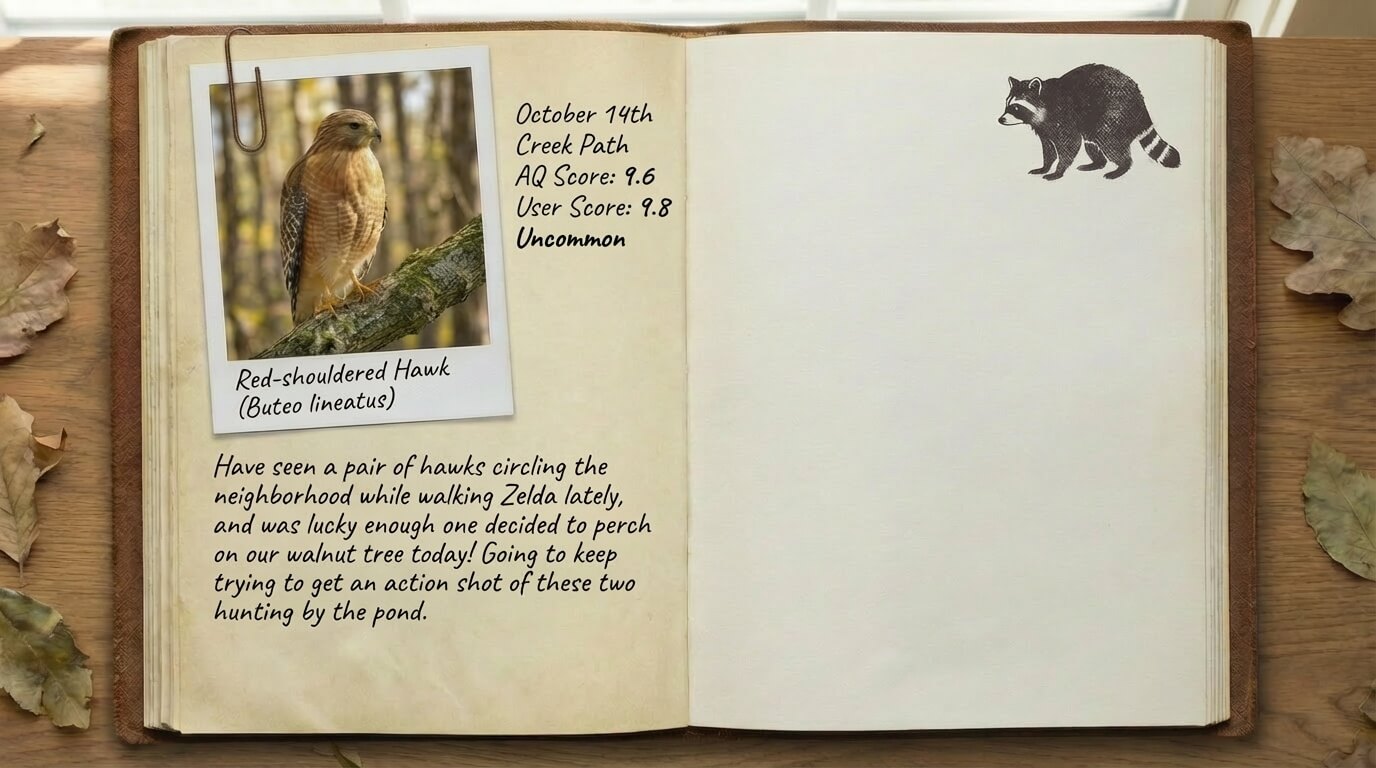 Red-shouldered Hawk
(Buteo lineatus)
October 14th
Creek Path
AQ Score: 9.6
User Score: 9.8
Uncommon
Have seen a pair of hawks circling the
neighborhood while walking Zelda lately,
and was lucky enough one decided to perch
on our walnut tree today! Going to keep
trying to get an action shot of these two
hunting by the pond.